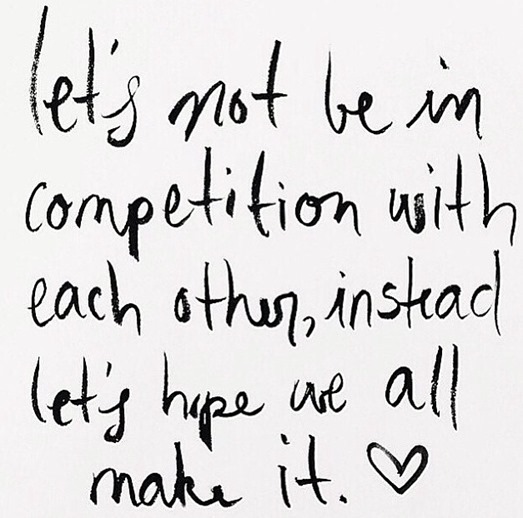 let's not be in
competition with
each other, instead
let's hope we all
make it. ♡